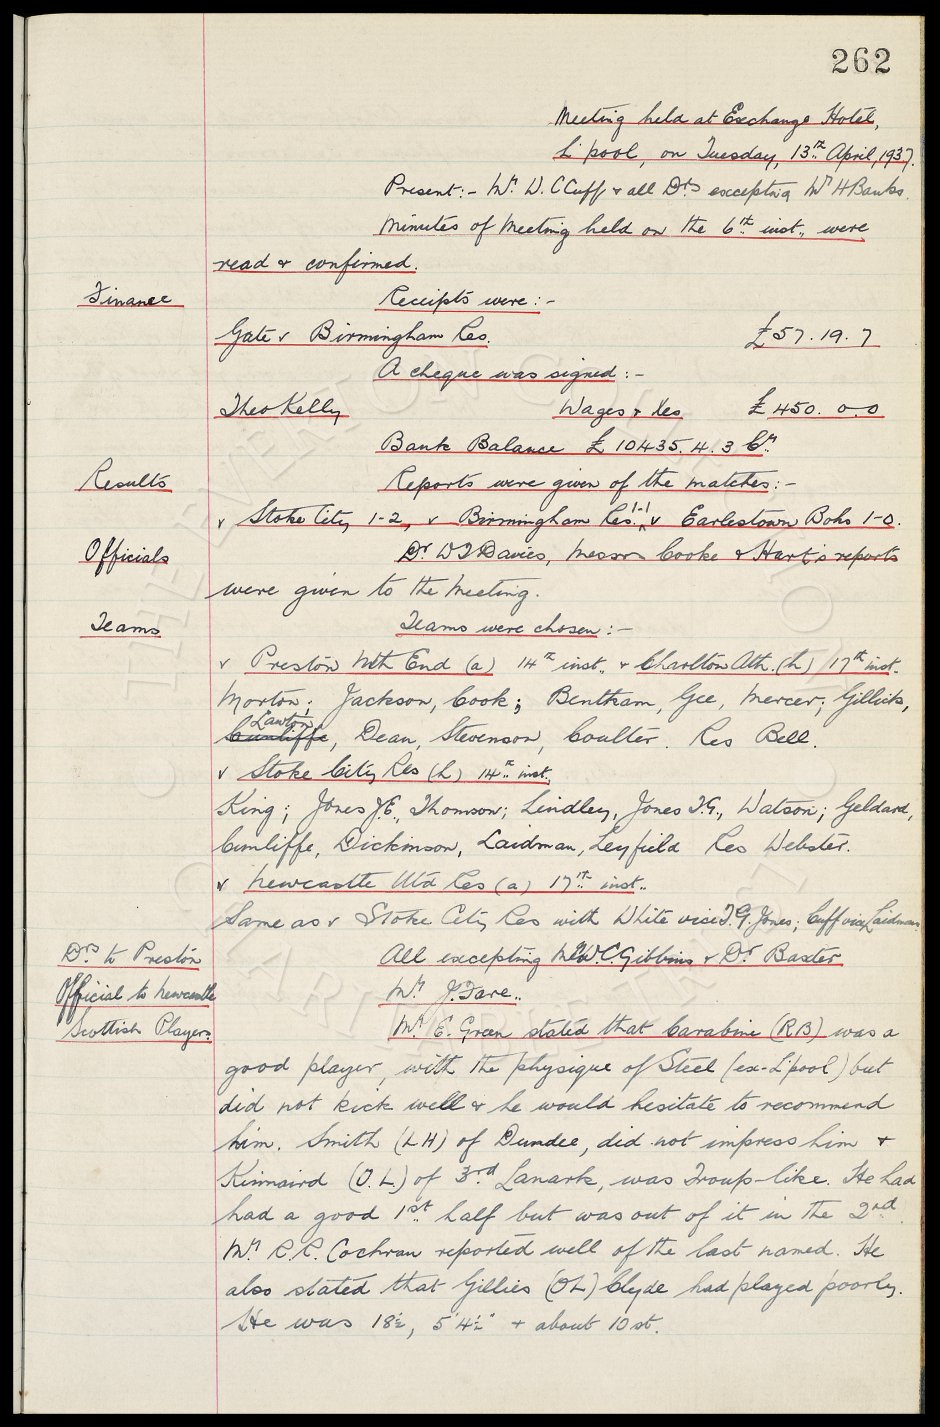 262
Meeting held at Exchange Hotel,
L'pool, on Tuesday, 13th April, 1937.
Present:- Mr. W. C Cuff & all Drs excepting Mr H Banks.
Minutes of Meeting held on the 6th inst., were
read & confirmed.
Finance Receipts were:-
Gate v Birmingham Res. £57.19.7
A cheque was signed:-
Theo Kelly Wages & Xes £450. 0.0
Bank Balance £10435.4.3 Cr.
Results Reports were given of the matches:-
v Stoke City 1-2, v Birmingham Res. 1-1 v Earlestown Bohs 1-0.
Officials Dr. W J Davies, Messrs Cooke & Hart's reports
were given to the Meeting.
Teams Teams were chosen:-
v Preston Nth End (a) 14th inst. v Charlton Ath. (h) 17th inst.
Morton; Jackson, Cook; Bentham, Gee, Mercer; Gillick,
Cunliffe Lawton, Dean, Stevenson, Coulter. Res Bell.
v Stoke City Res (h) 14th inst.
King; Jones J.E., Thomson; Lindley, Jones T.G., Watson; Geldard,
Cunliffe, Dickinson, Laidman, Leyfield Res Webster.
v Newcastle Utd Res (a) 17th inst..
Same as v Stoke City Res with White vice T.G. Jones; Cuff vice Laidman
Drs to Preston All excepting Mr W.C. Gibbins & Dr Baxter
Official to Newcastle Mr J. Fare..
Scottish Players Mr E. Green stated that Carabine (R.B) was a
good player, with the physique of Steel (ex-L'pool) but
did not kick well & he would hesitate to recommend
him. Smith (L H) of Dundee, did not impress him &
Kinnaird (O.L.) of 3rd Lanark, was Troup-like. He had
had a good 1st half but was out of it in the 2nd.
Mr R.R. Cochran reported well of the last named. He
also stated that Gillies (OL) Clyde had played poorly.
He was 18½, 5'4½" & about 10 st.